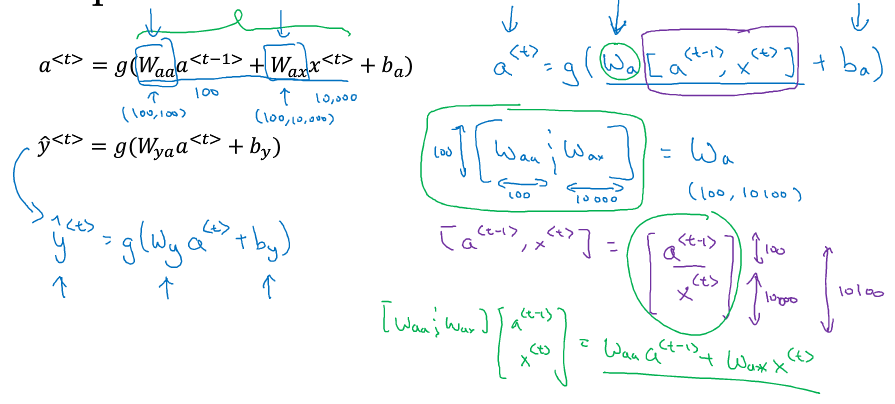 a<t> = g(Waa a<t−1> + Wax x<t> + ba)
100
10,000
(100,100)
(100,10,000)
ŷ<t> = g(Wya a<t> + by)
ŷ<t> = g(Wy a<t> + by)
a<t> = g(Wa [a<t-1>, x<t>] + ba)
100 [Waa ; Wax] = Wa
100
10000
(100, 10100)
[a<t-1>, x<t>] = [a<t-1>
x<t>]
100
10,000
10100
[Waa ; Wax] [a<t-1>
x<t>] = Waa a<t-1> + Wax x<t>